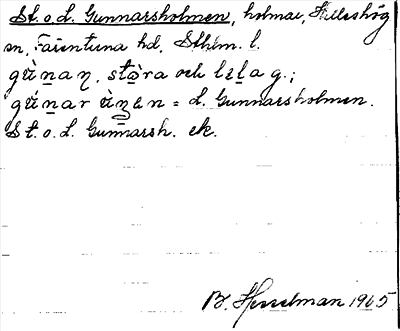 St. o. L. Gunnarsholmen, holmar, Hilleshög
sn, Färentuna hd, Sthlm. l.
gùnaṛ, sto̱ra och lɛlag.;
gúnar ùṇɛn = L. Gunnarsholmen.
St. o. L. Gunnarsh. ek.
B. Hesselman 1905